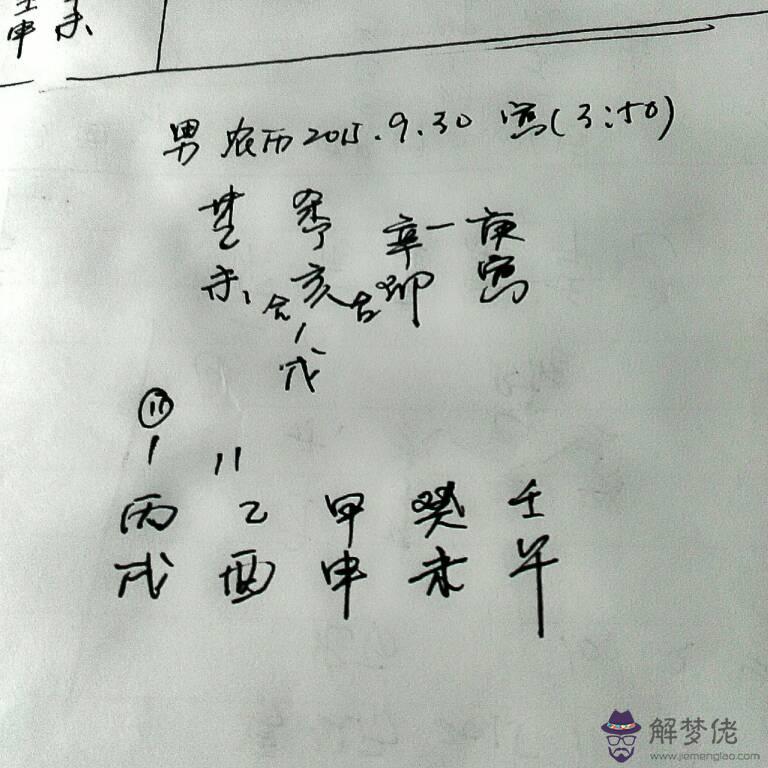 申 未
男 农历2015.9.30 寅(3:50)
乙 丁 辛一庚
未 合 亥 卯 寅
戌
丙 乙 甲 癸 壬
戌 酉 申 未 午
解梦佬
www.jiemenglao.com